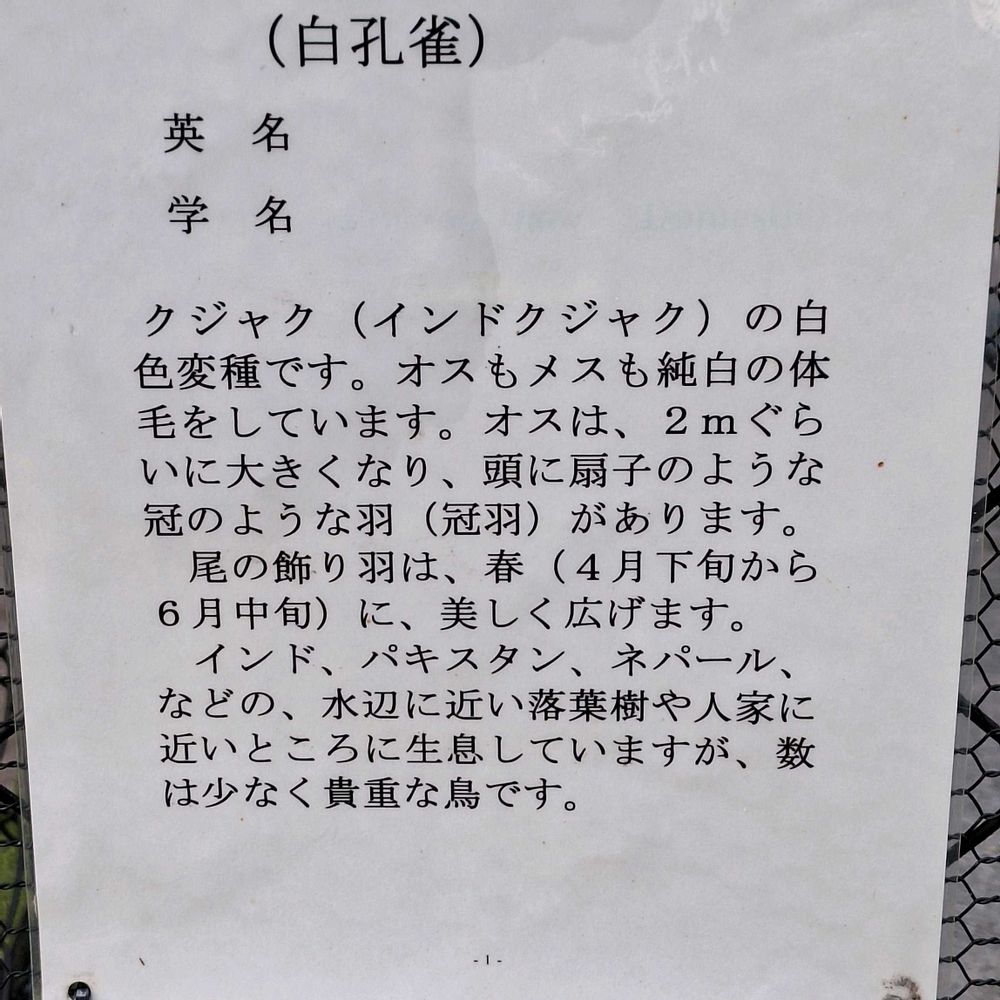 （白孔雀）
英　名
学　名
クジャク（インドクジャク）の白
色変種です。オスもメスも純白の体
毛をしています。オスは、２ｍぐら
いに大きくなり、頭に扇子のような
冠のような羽（冠羽）があります。
尾の飾り羽は、春（４月下旬から
６月中旬）に、美しく広げます。
インド、パキスタン、ネパール、
などの、水辺に近い落葉樹や人家に
近いところに生息していますが、数
は少なく貴重な鳥です。
- 1 -